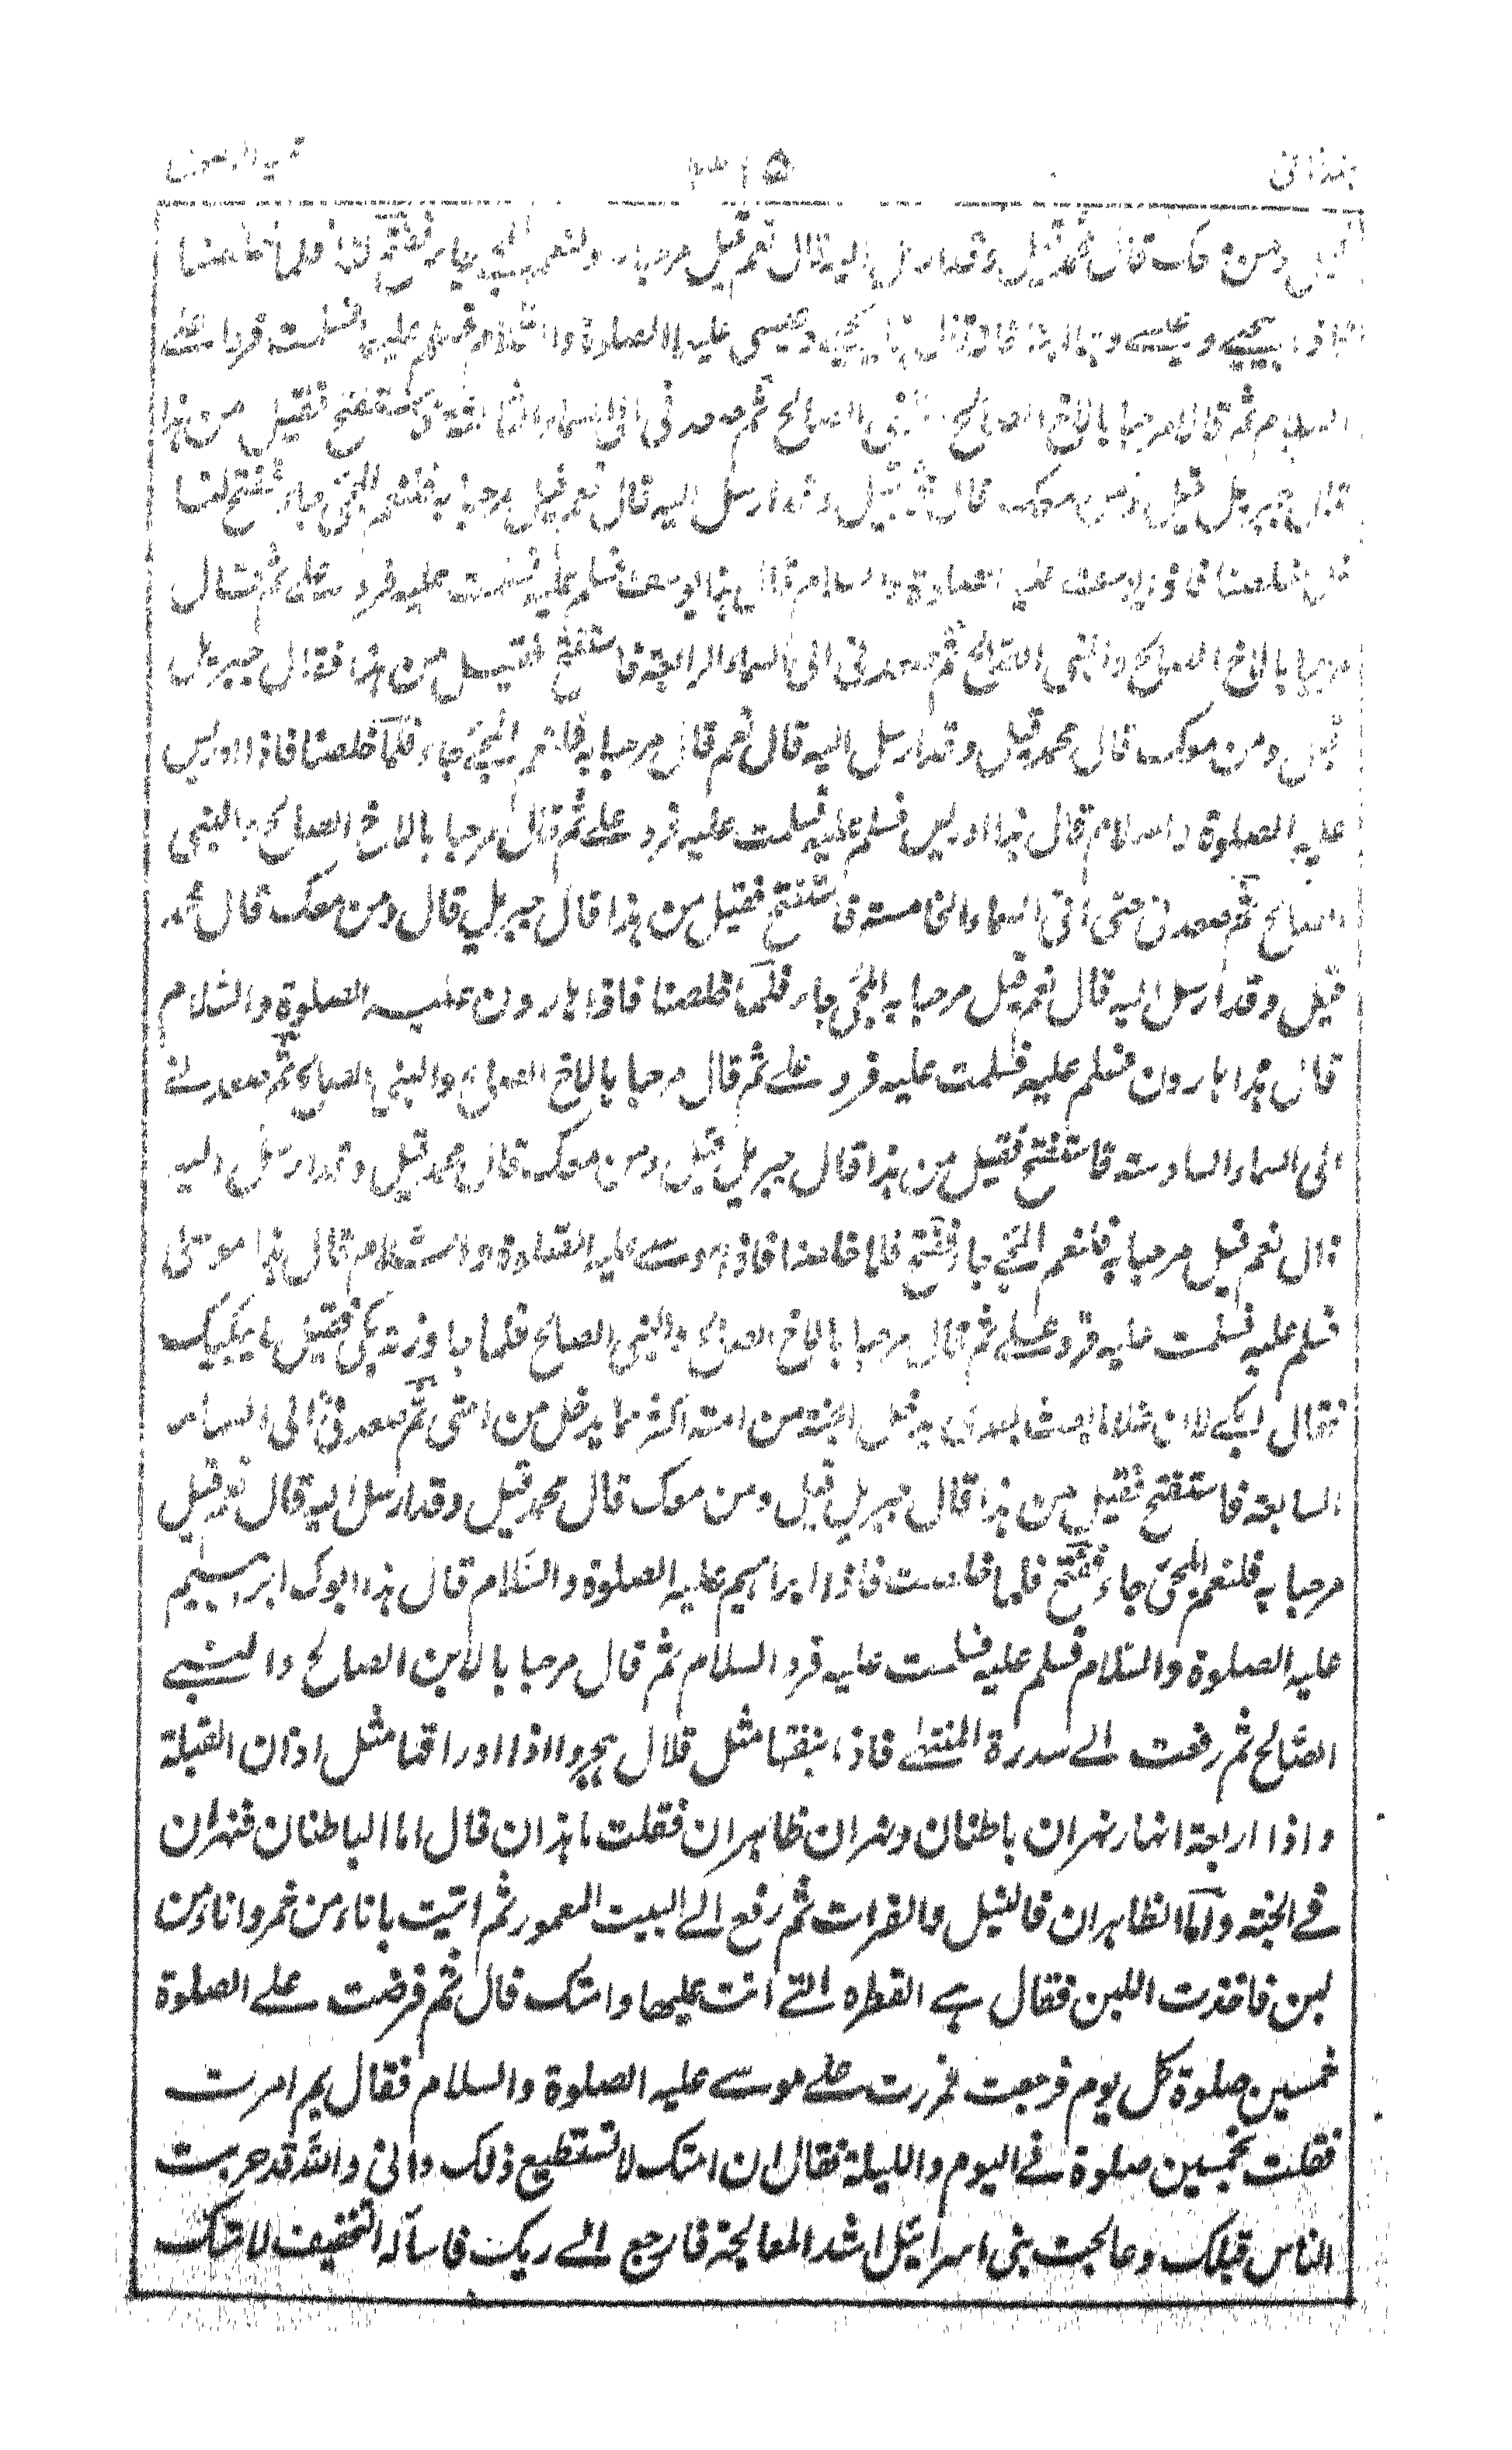 قيل ومن معك قال محمد قيل وقد ارسل اليه قال نعم قيل مرحبا به ولنعم المجئ جاء ففتح لنا فلما خلصنا
فاذا يحيے وعيسے وهما ابنا خالة قال هذا يحيى وعيسى عليهما الصلوة والسلام فسلم عليهما فسلمت فردا علے
السلام ثم قالا مرحبا بالاخ الصالح والنبي الصالح ثم صعد بي الى السماء الثالثة فاستفتح فقيل من هذا
قال جبريل قيل ومن معك قال محمد قيل وقد ارسل اليه قال نعم قيل مرحبا به فلنعم المجئ جاء ففتح لنا
فلما خلصنا فاذا يوسف عليه الصلوة والسلام قال هذا يوسف فسلم عليه فسلمت عليه فرد علے ثم قال
مرحبا بالاخ الصالح والنبي الصالح ثم صعد بي الى السماء الرابعة فاستفتح فقيل من هذا فقال جبريل
قيل ومن معك قال محمد قيل وقد ارسل اليه قال نعم قال مرحبا به فلنعم المجئ جاء فلما خلصنا فاذا ادريس
عليه الصلوة والسلام قال هذا ادريس فسلم عليه فسلمت عليه فرد علے ثم قال مرحبا بالاخ الصالح والنبي
الصالح ثم صعد بي حتى اتى السماء الخامسة فاستفتح فقيل من هذا قال جبريل قال ومن معك قال محمد
قيل وقد ارسل اليه قال نعم قيل مرحبا به المجئ جاء فلما خلصنا فاذا هارون عليه الصلوة والسلام
قال هذا هارون فسلم عليه فسلمت عليه فرد علے ثم قال مرحبا بالاخ الصالح والنبي الصالح ثم صعد بے
الى السماء السادسة فاستفتح فقيل من هذا قال جبريل قيل ومن معك قال محمد قيل وقد ارسل اليه
قال نعم قيل مرحبا به فلنعم المجئ جاء ففتح فلما خلصنا فاذا موسے عليه الصلوة والسلام قال هذا موسى
فسلم عليه فسلمت عليه فرد علے ثم قال مرحبا بالاخ الصالح والنبي الصالح فلما جاوزته بكى فقيل ما يبكيك
فقال ابكے لان غلاما بعث بعدي يدخل الجنة من امته اكثر مما يدخل من امتى ثم صعد بي الى السماء
السابعة فاستفتح فقيل من هذا قال جبريل قيل ومن معك قال محمد قيل وقد ارسل اليه قال نعم قيل
مرحبا به فلنعم المجئ جاء ففتح فلما خلصت فاذا ابراهيم عليه الصلوة والسلام قال هذا ابوك ابراهيم
عليه الصلوة والسلام فسلم عليه فسلمت عليه فرد السلام ثم قال مرحبا بالابن الصالح والنبے
الصالح ثم رفعت الے سدرة المنتهے فاذا نبقها مثل قلال هجر واذا اوراقها مثل اذان الفيلة
واذا اربعة انهار نهران باطنان ونهران ظاهران فقلت ما هذان قال اما الباطنان فنهران
فے الجنة واما الظاهران فالنيل والفرات ثم رفع الے البيت المعمور ثم اتيت باناء من خمر واناء من
لبن فاخذت اللبن فقال هے الفطره التے انت عليها وامتك قال ثم فرضت علے الصلوة
خمسين صلوة كل يوم فرجعت فمررت علے موسے عليه الصلوة والسلام فقال بم امرت
فقلت بخمسين صلوة فے اليوم والليلة فقال ان امتك لا تستطيع ذلك وانى والله قد جربت
الناس قبلك وعالجت بنى اسرائيل اشد المعالجة فارجع الے ربك فاساله التخفيف لامتك